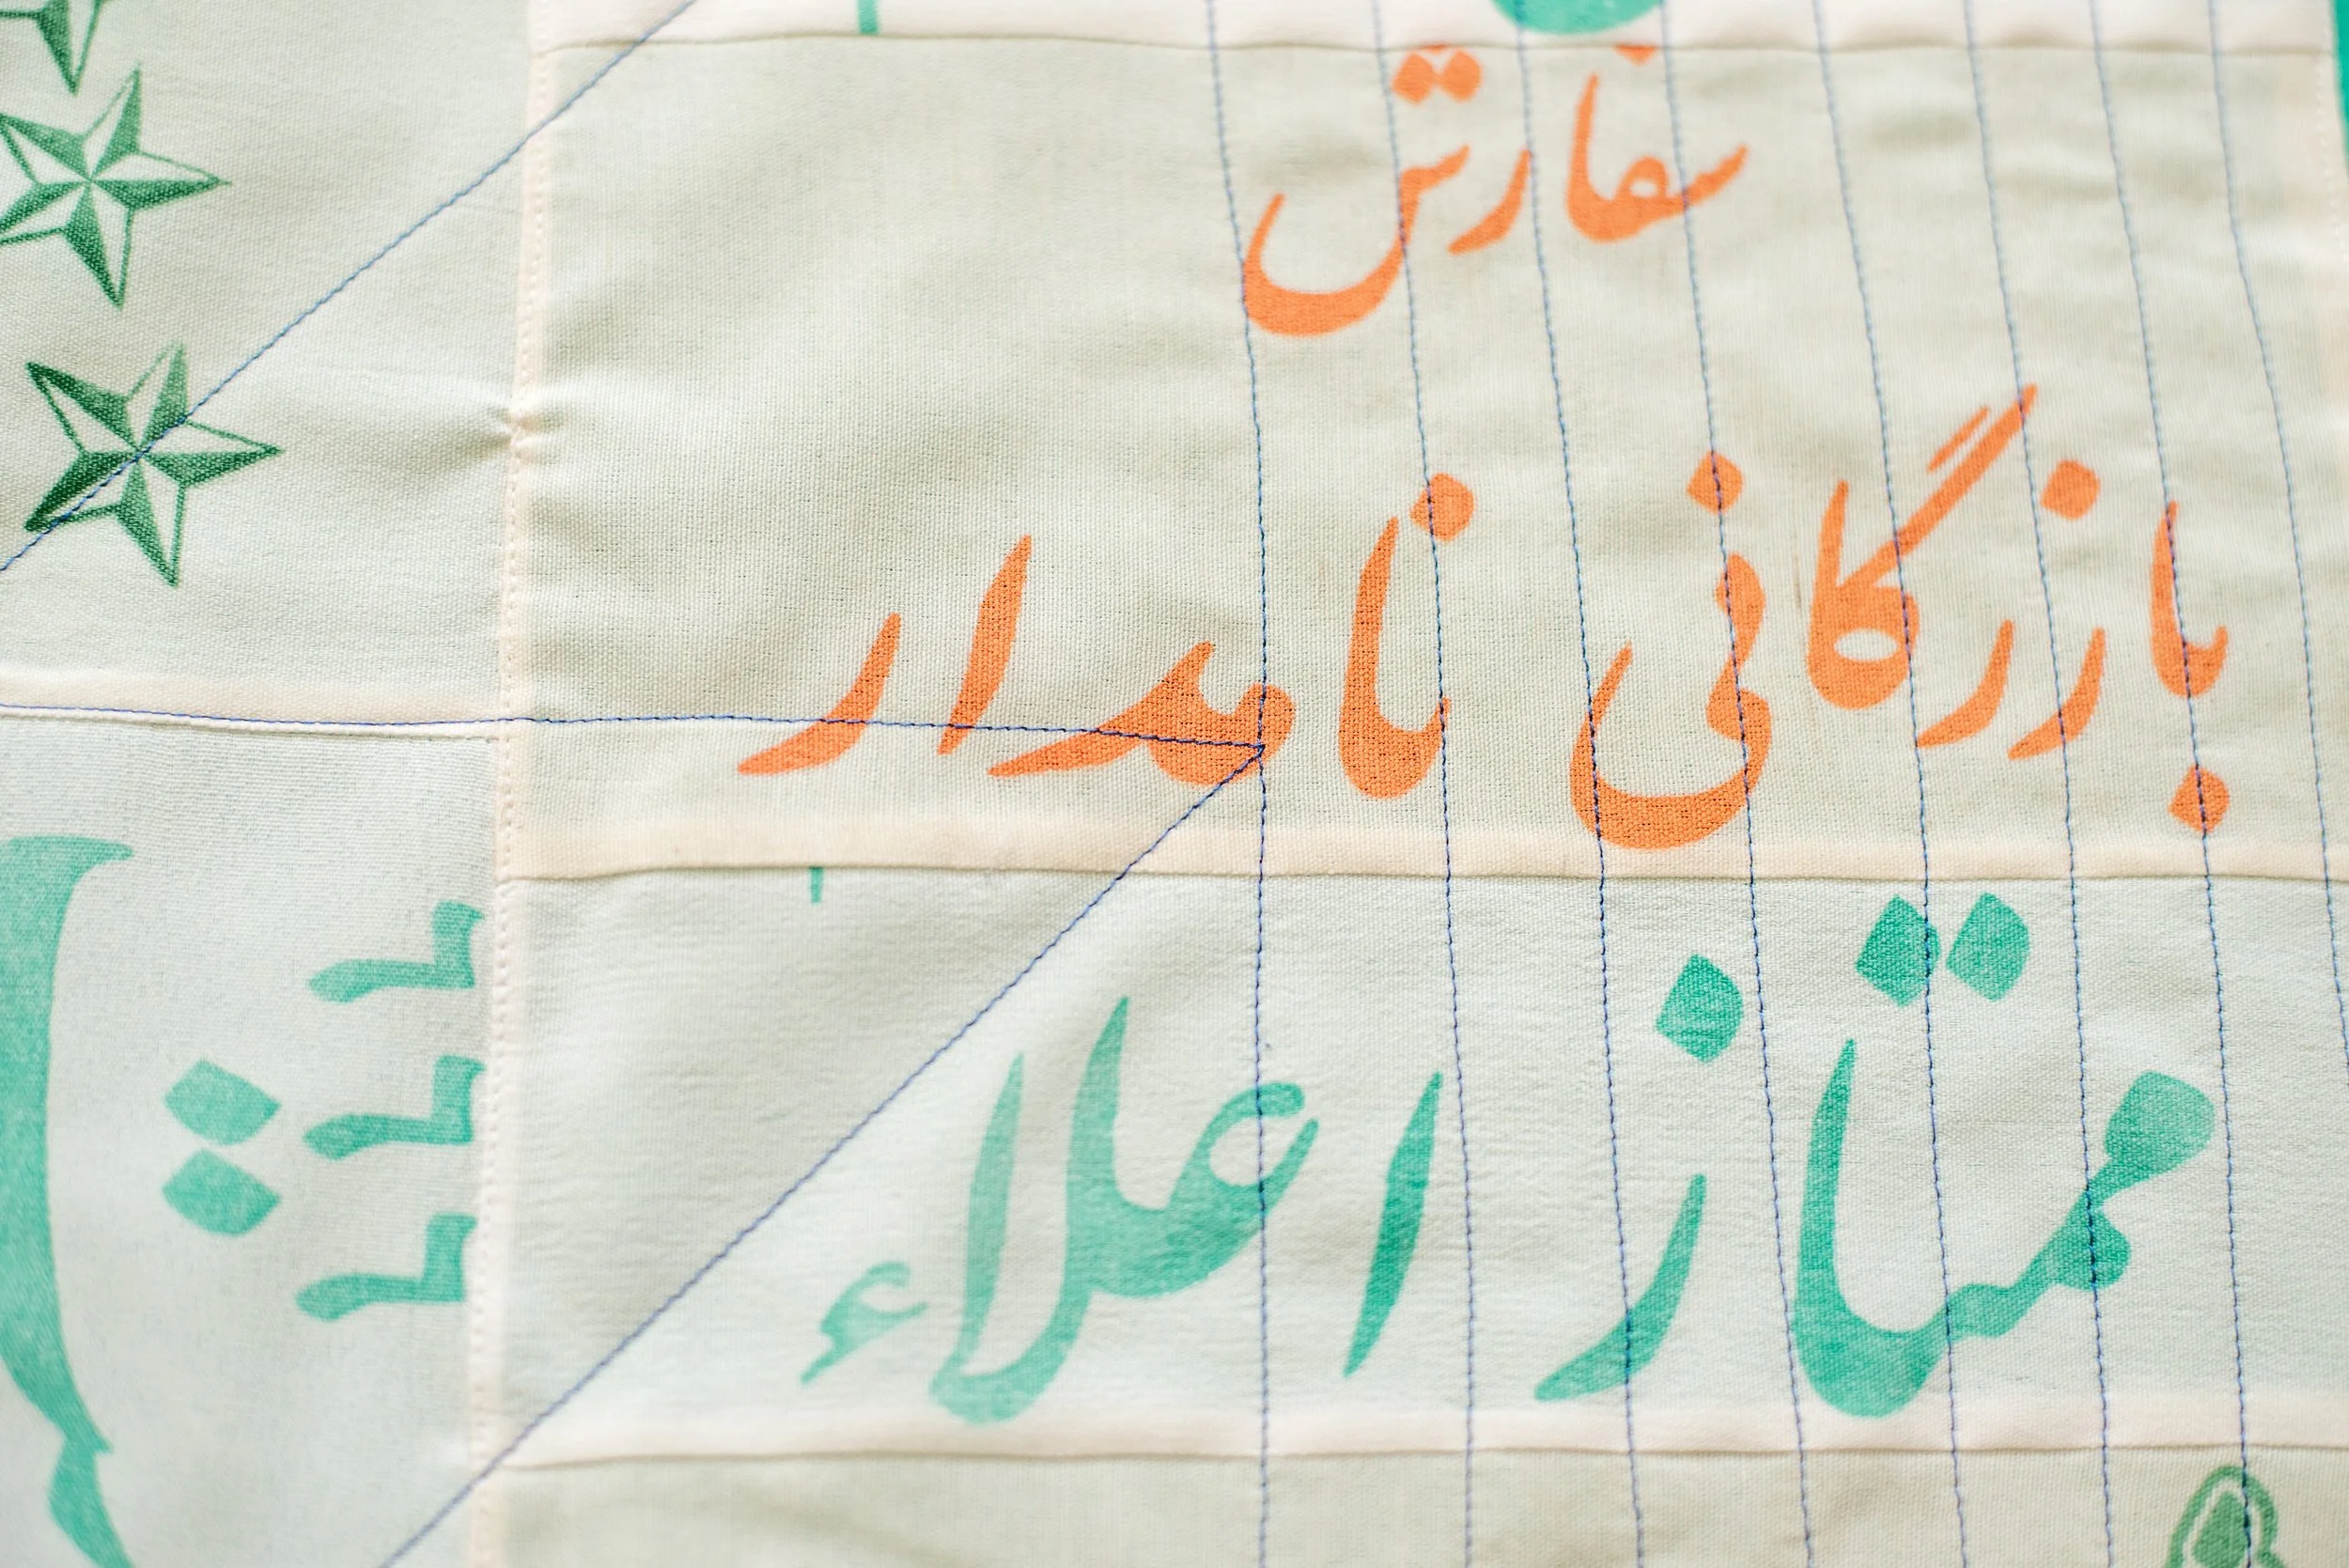 سفارش
بازرگانی نامدار
ممتاز اعلاء